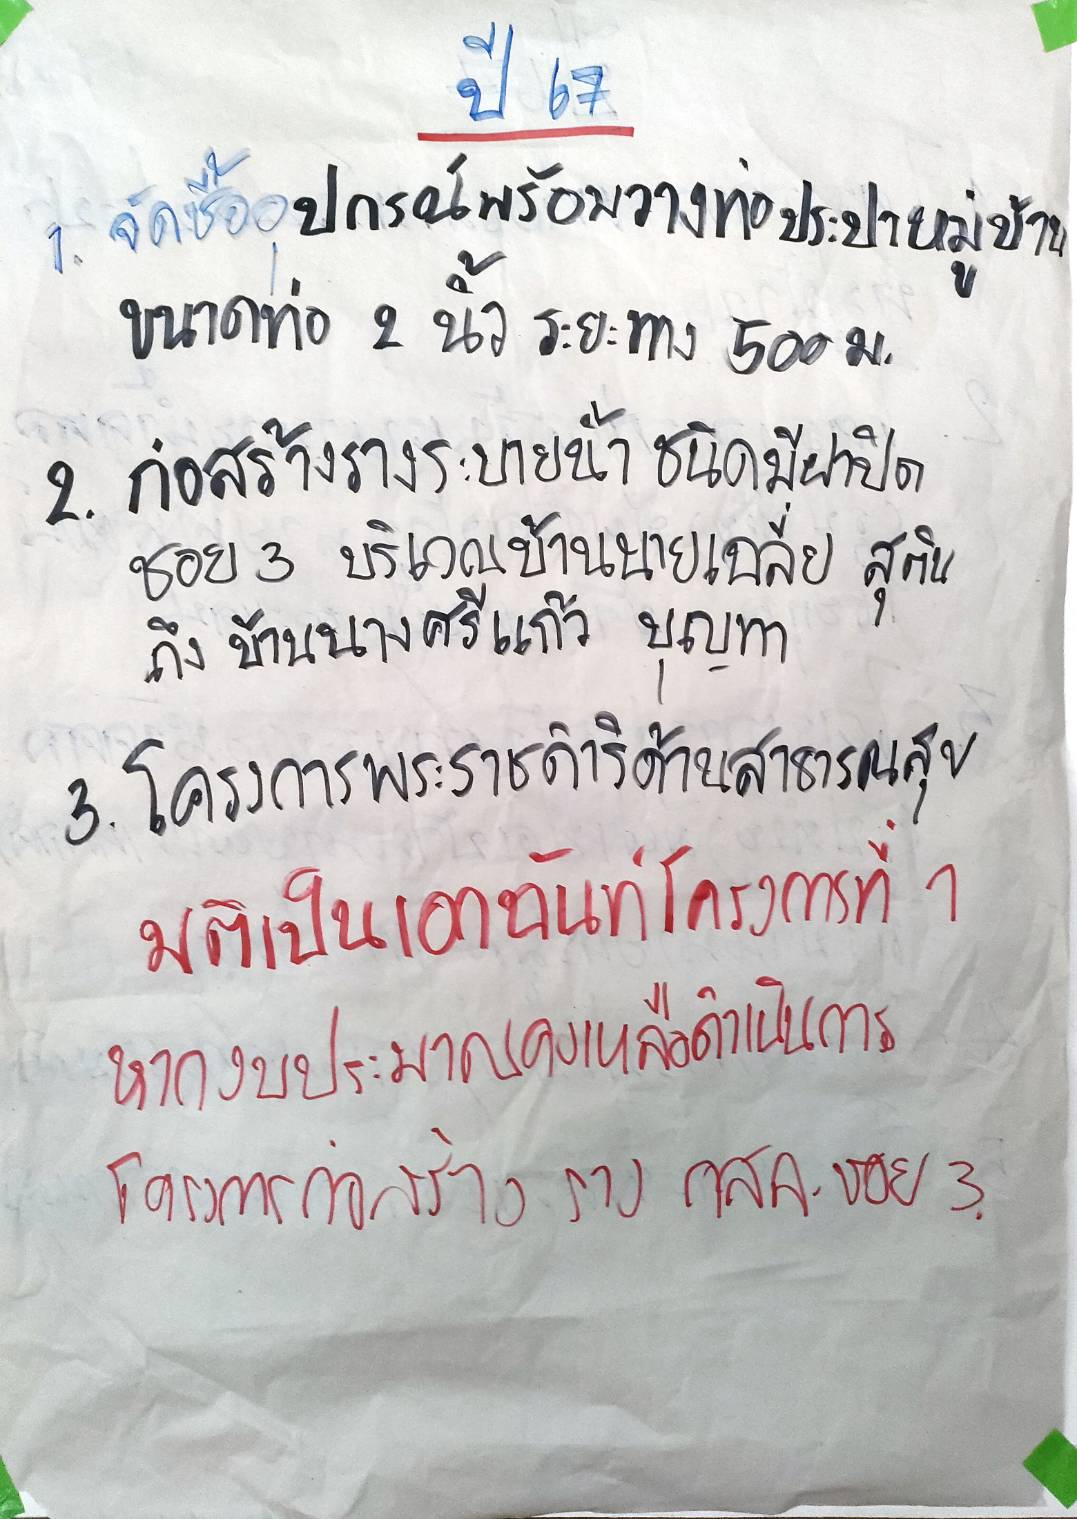 ปี 67
1. จัดซื้ออุปกรณ์พร้อมวางท่อประปาหมู่บ้าน
ขนาดท่อ 2 นิ้ว ระยะทาง 500 ม.
2. ก่อสร้างรางระบายน้ำ ชนิดมีฝาปิด
ซอย 3 บริเวณบ้านนายเฉลี่ย สุตัน
ถึง บ้านนางศรีแก้ว บุญทา
3. โครงการพระราชดำริด้านสาธารณสุข
มติเป็นเอกฉันท์โครงการที่ 1
หากงบประมาณคงเหลือดำเนินการ
โครงการก่อสร้าง ราง คสล. ซอย 3.